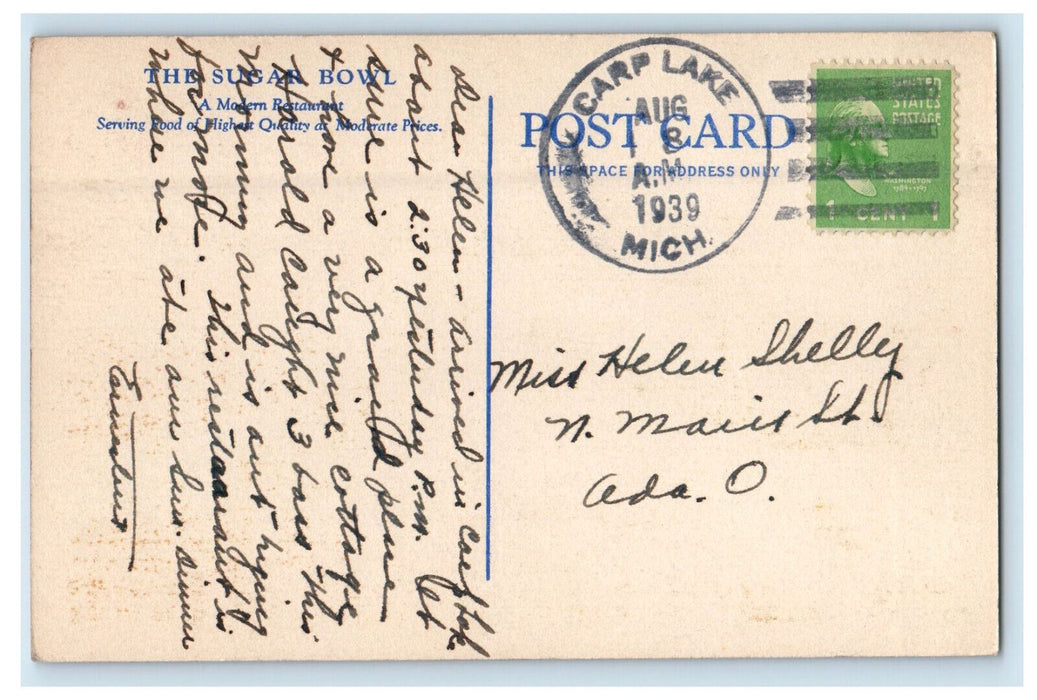 THE SUGAR BOWL
A Modern Restaurant
Serving Food of Highest Quality at Moderate Prices.
Dear Helen - arrived in Carp Lake
about 2:30 yesterday P.M. It
sure is a grand place
& have a very nice cottage
Harold caught 3 bass this
morning and is out trying
for more. This restaurant is
where we ate our Sun. dinner
POST CARD
THIS SPACE FOR ADDRESS ONLY
CARP LAKE
AUG
8
A.M.
1939
MICH.
UNITED
STATES
POSTAGE
WASHINGTON
1789-1797
1 CENT 1
Miss Helen Shelly
N. Main St.
Ada. O.